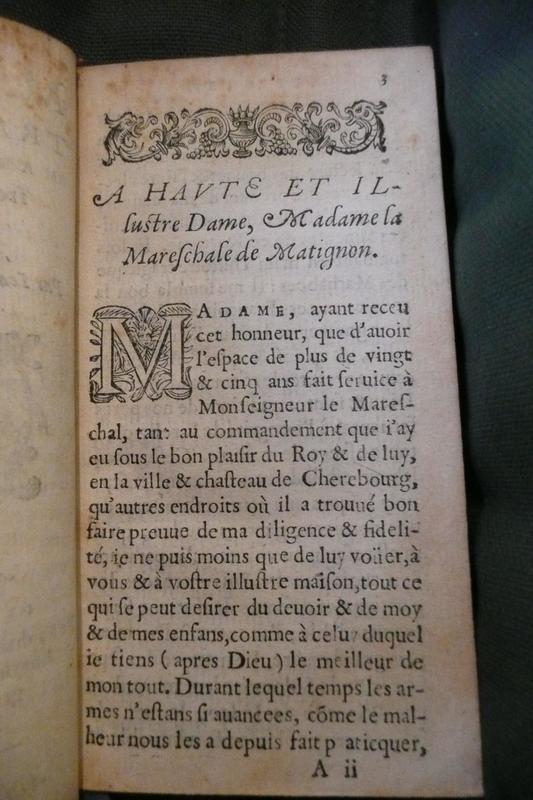 3
A HAVTE ET IL-
lustre Dame, Madame la
Mareſchale de Matignon.
MADAME, ayant receu
cet honneur, que d'auoir
l'eſpace de plus de vingt
& cinq ans fait ſeruice à
Monſeigneur le Mareſ-
chal, tant au commandement que i'ay
eu ſous le bon plaiſir du Roy & de luy,
en la ville & chaſteau de Cherebourg,
qu'autres endroits où il a trouué bon
faire preuue de ma diligence & fideli-
té, ie ne puis moins que de luy voüer, à
vous & à voſtre illuſtre maiſon, tout ce
qui ſe peut deſirer du deuoir & de moy
& de mes enfans, comme à celuy duquel
ie tiens ( apres Dieu ) le meilleur de
mon tout. Durant lequel temps les ar-
mes n'eſtans ſi auancees, cõme le mal-
heur nous les a depuis fait p aticquer,
A ii